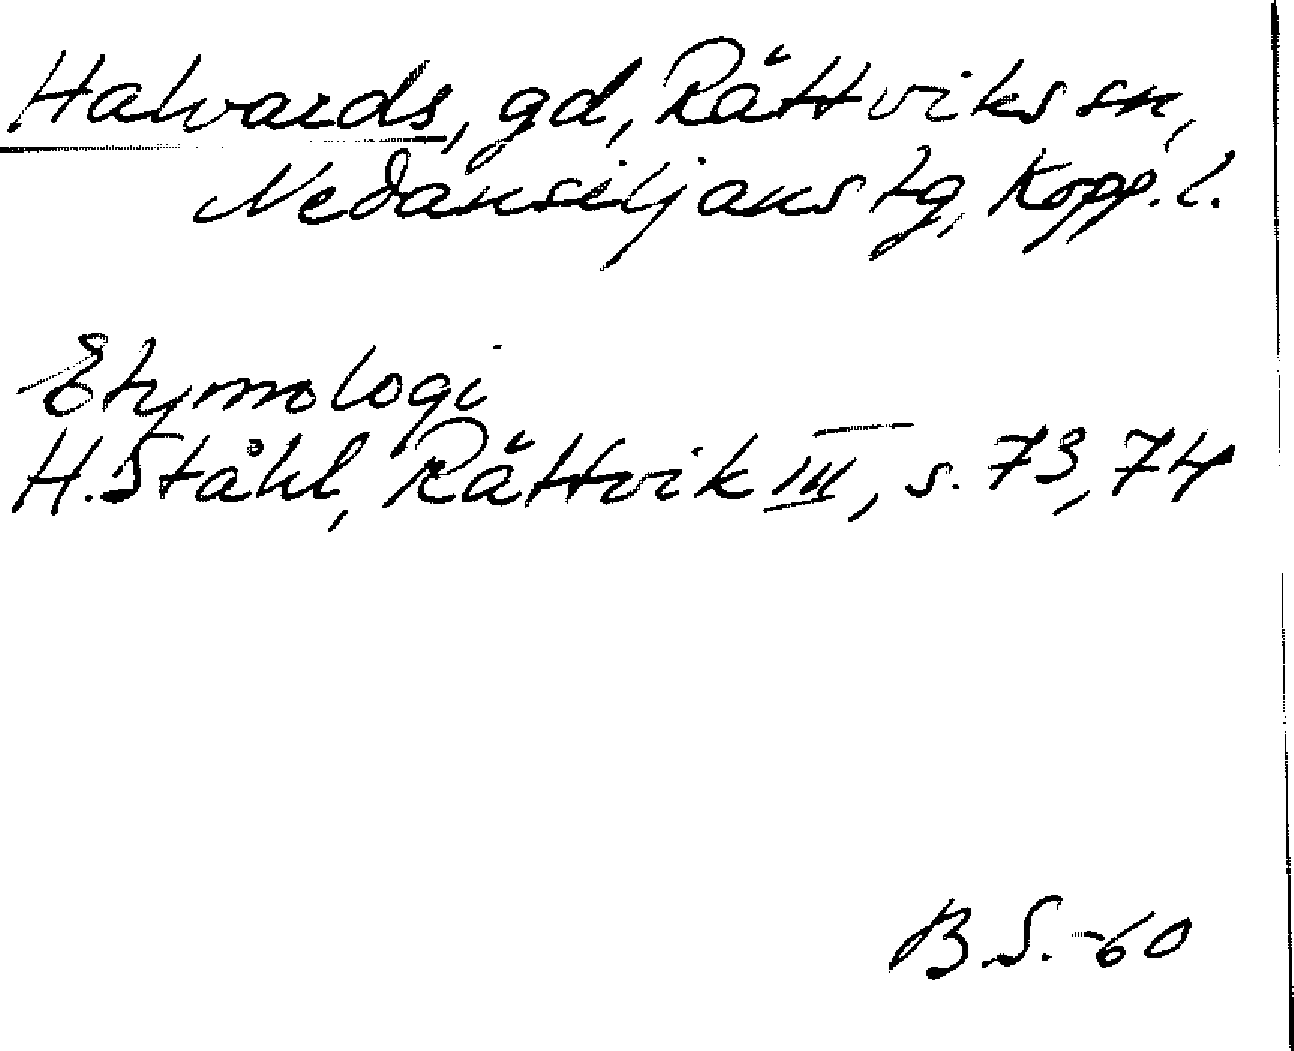 Halvards, gd, Rättviks sn,
Nedansiljans tg, Kopp. l.
Etymologi
H. Ståhl, Rättvik III, s. 73, 74
B.S. -60